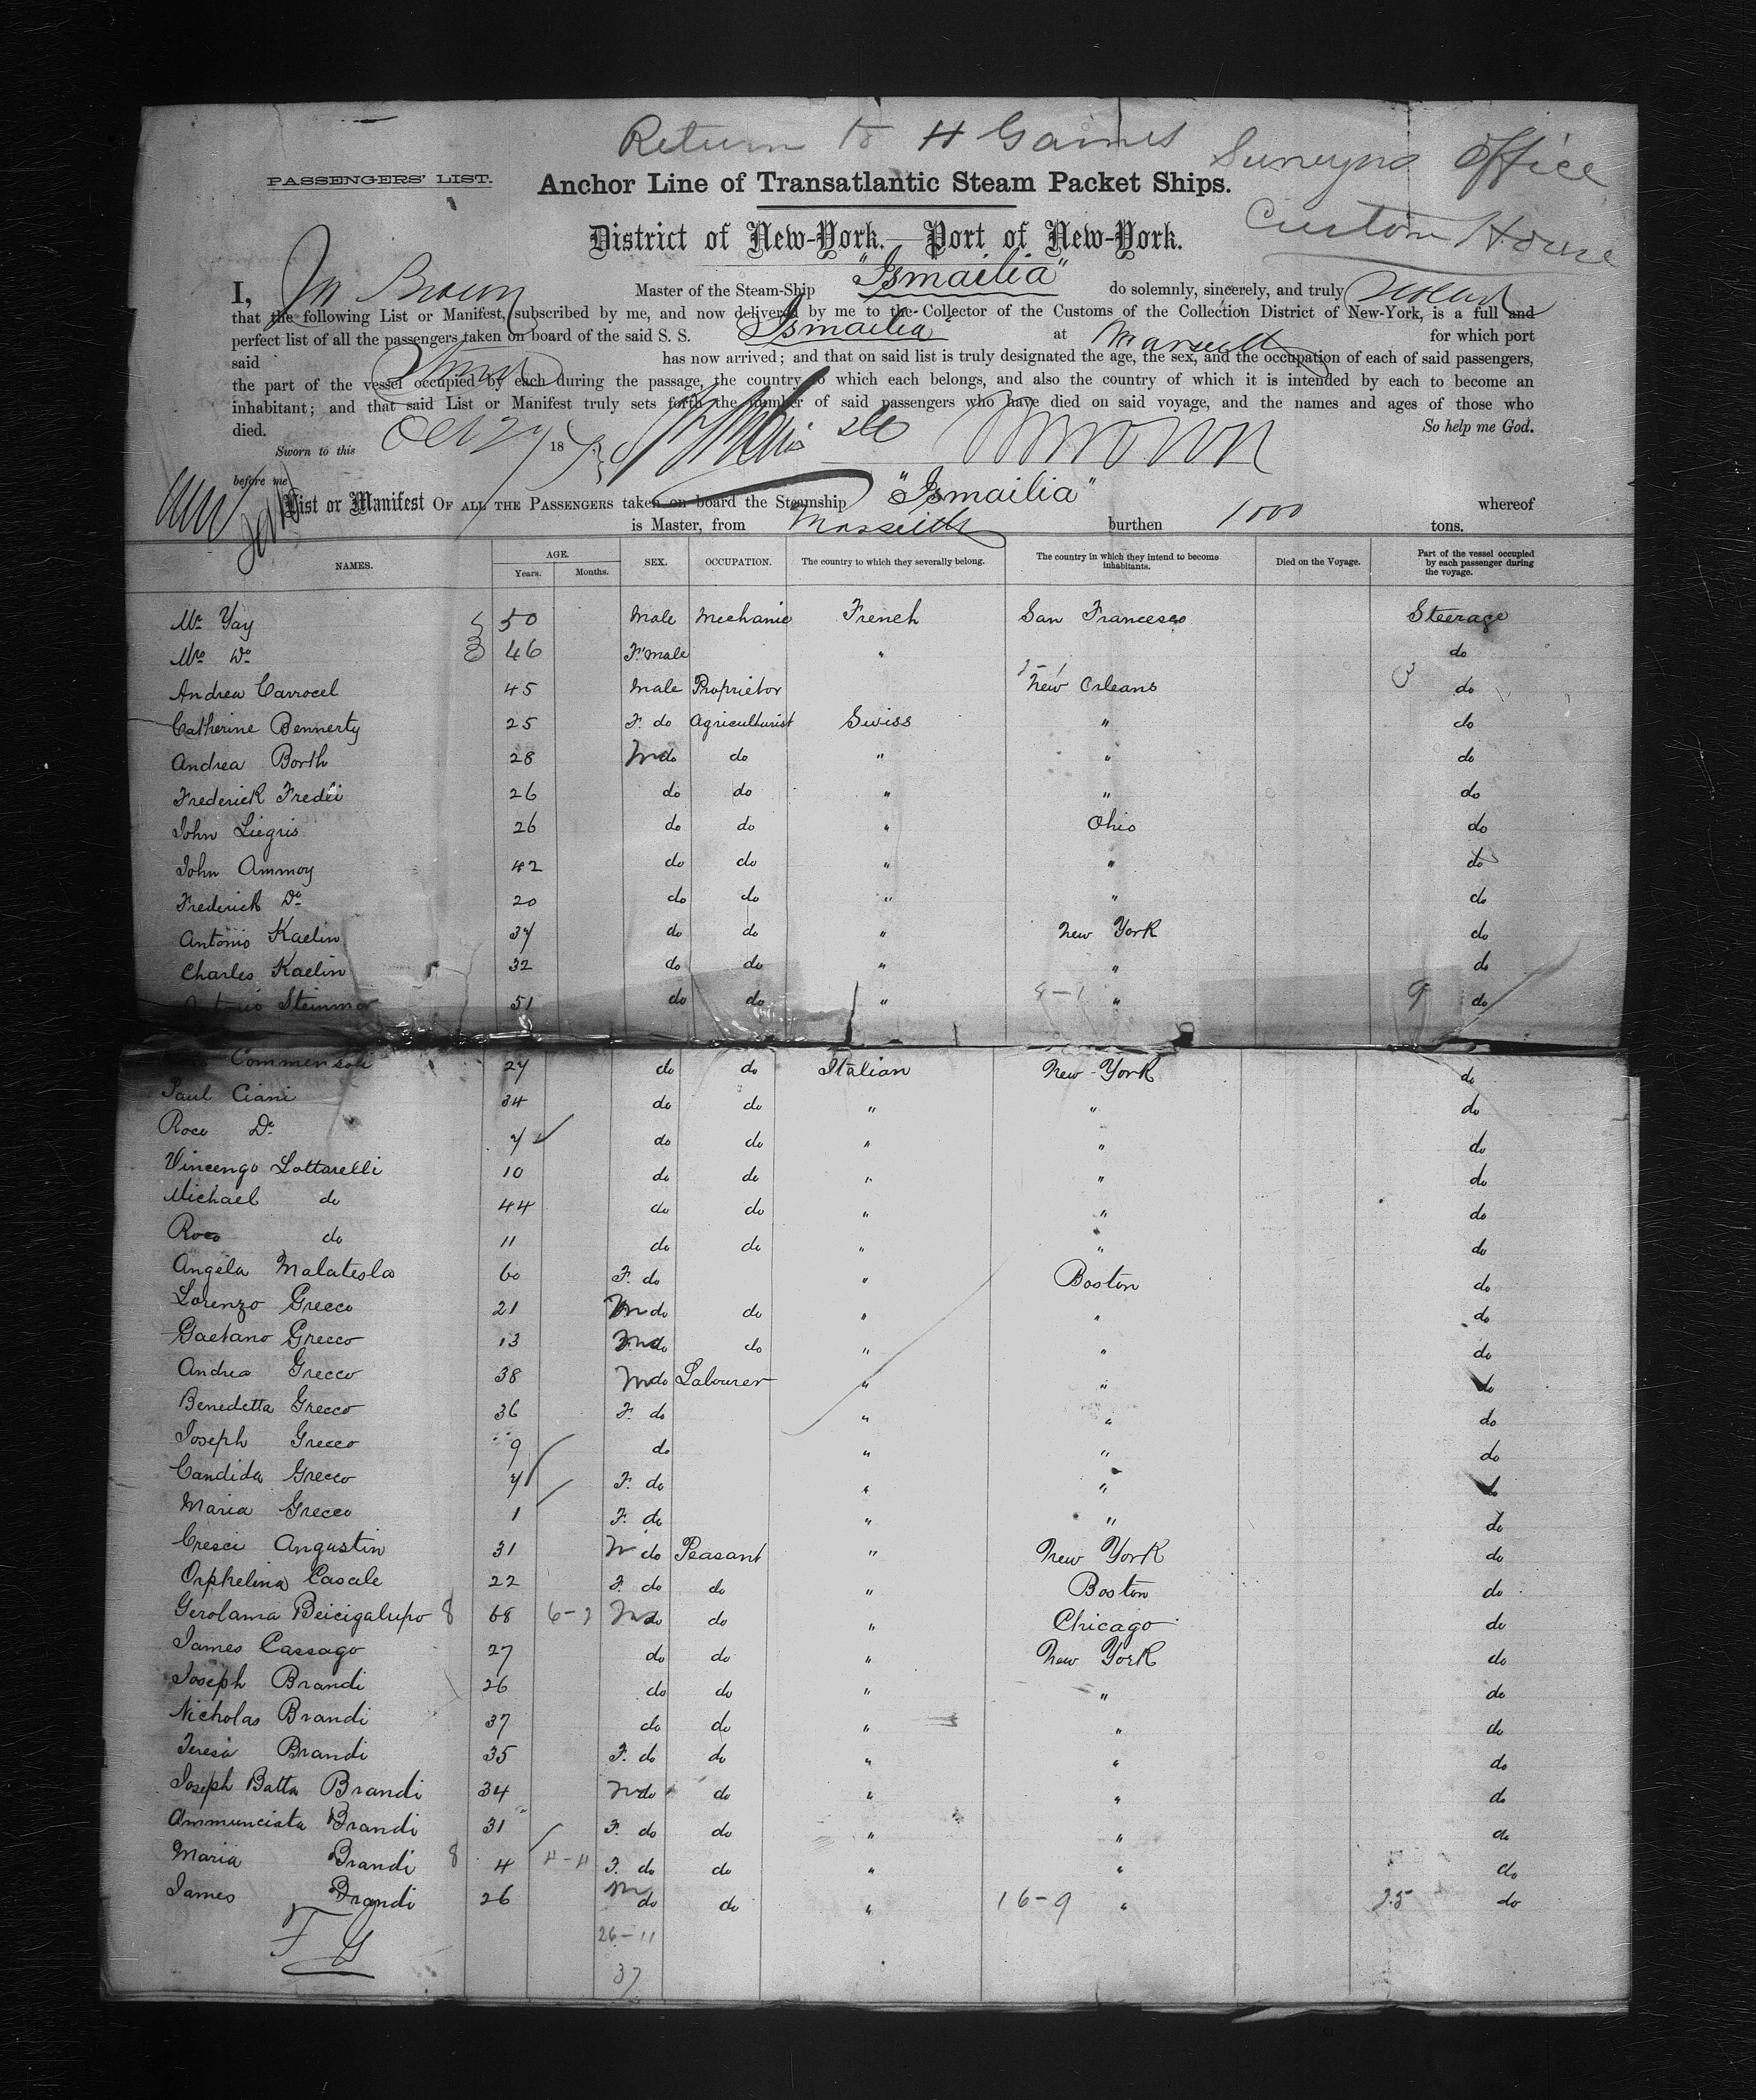 Return to H Gaines Surveyors Office
Custom House
PASSENGERS' LIST.
Anchor Line of Transatlantic Steam Packet Ships.
District of New-York.—Port of New-York.
I, Brown Master of the Steam-Ship "Ismailia" do solemnly, sincerely, and truly
that the following List or Manifest, subscribed by me, and now delivered by me to the Collector of the Customs of the Collection District of New-York, is a full and
perfect list of all the passengers taken on board of the said S. S. Ismailia at for which port
said has now arrived; and that on said list is truly designated the age, the sex, and the occupation of each of said passengers,
the part of the vessel occupied by each during the passage, the country to which each belongs, and also the country of which it is intended by each to become an
inhabitant; and that said List or Manifest truly sets forth the number of said passengers who have died on said voyage, and the names and ages of those who
died. So help me God.
Sworn to this Oct 27 18 Brown
before me
List or Manifest OF ALL THE PASSENGERS taken on board the Steamship "Ismailia" whereof
is Master, from Marseille burthen 1000 tons.
NAMES. AGE. Years. Months. SEX. OCCUPATION. The country to which they severally belong. The country in which they intend to become inhabitants. Died on the Voyage. Part of the vessel occupied by each passenger during the voyage.
Mr Yay 50 Male Mechanic French San Francesco Steerage
Mrs Do 46 F. male " do
Andrea Carrocel 45 Male Proprietor New Orleans 3 do
Catherine Bennerty 25 F. do Agriculturist Swiss " do
Andrea Borth 28 M do do " " do
Frederick Fredei 26 do do " " do
John Liegris 26 do do " Ohio do
John Ammoy 42 do do " " do
Frederick Do 20 do do " " do
Antonio Kaelin 37 do do " New York do
Charles Kaelin 32 do do " " do
Steinmar 51 do do " " 9 do
Commensoli 27 do do Italian New-York do
Paul Ciani 34 do do " " do
Roco Do 7 do do " " do
Vincengo Lottarelli 10 do do " " do
Michael do 44 do do " " do
Roco do 11 do do " " do
Angela Malatesla 60 F. do " Boston do
Lorenzo Grecco 21 M do do " " do
Gaetano Grecco 13 M do do " " do
Andrea Grecco 38 M do Labourer " " do
Benedetta Grecco 36 F. do " " do
Joseph Grecco 9 do " " do
Candida Grecco 7 F. do " " do
Maria Grecco 1 F. do " " do
Cresci Angustin 31 M do Peasant " New York do
Orphelina Casale 22 F. do do " Boston do
Gerolama Beicigalupo 8 68 6-2 M do do " Chicago do
James Cassago 27 do do " New York do
Joseph Brandi 26 do do " " do
Nicholas Brandi 37 do do " " do
Teresa Brandi 35 F. do do " " do
Joseph Batta Brandi 34 M do do " " do
Ammuncista Brandi 31 F. do do " " do
Maria Brandi 8 4 4-4 F. do do " " do
James Brandi 26 M do do " 16-9 " 25 do
26-11
37